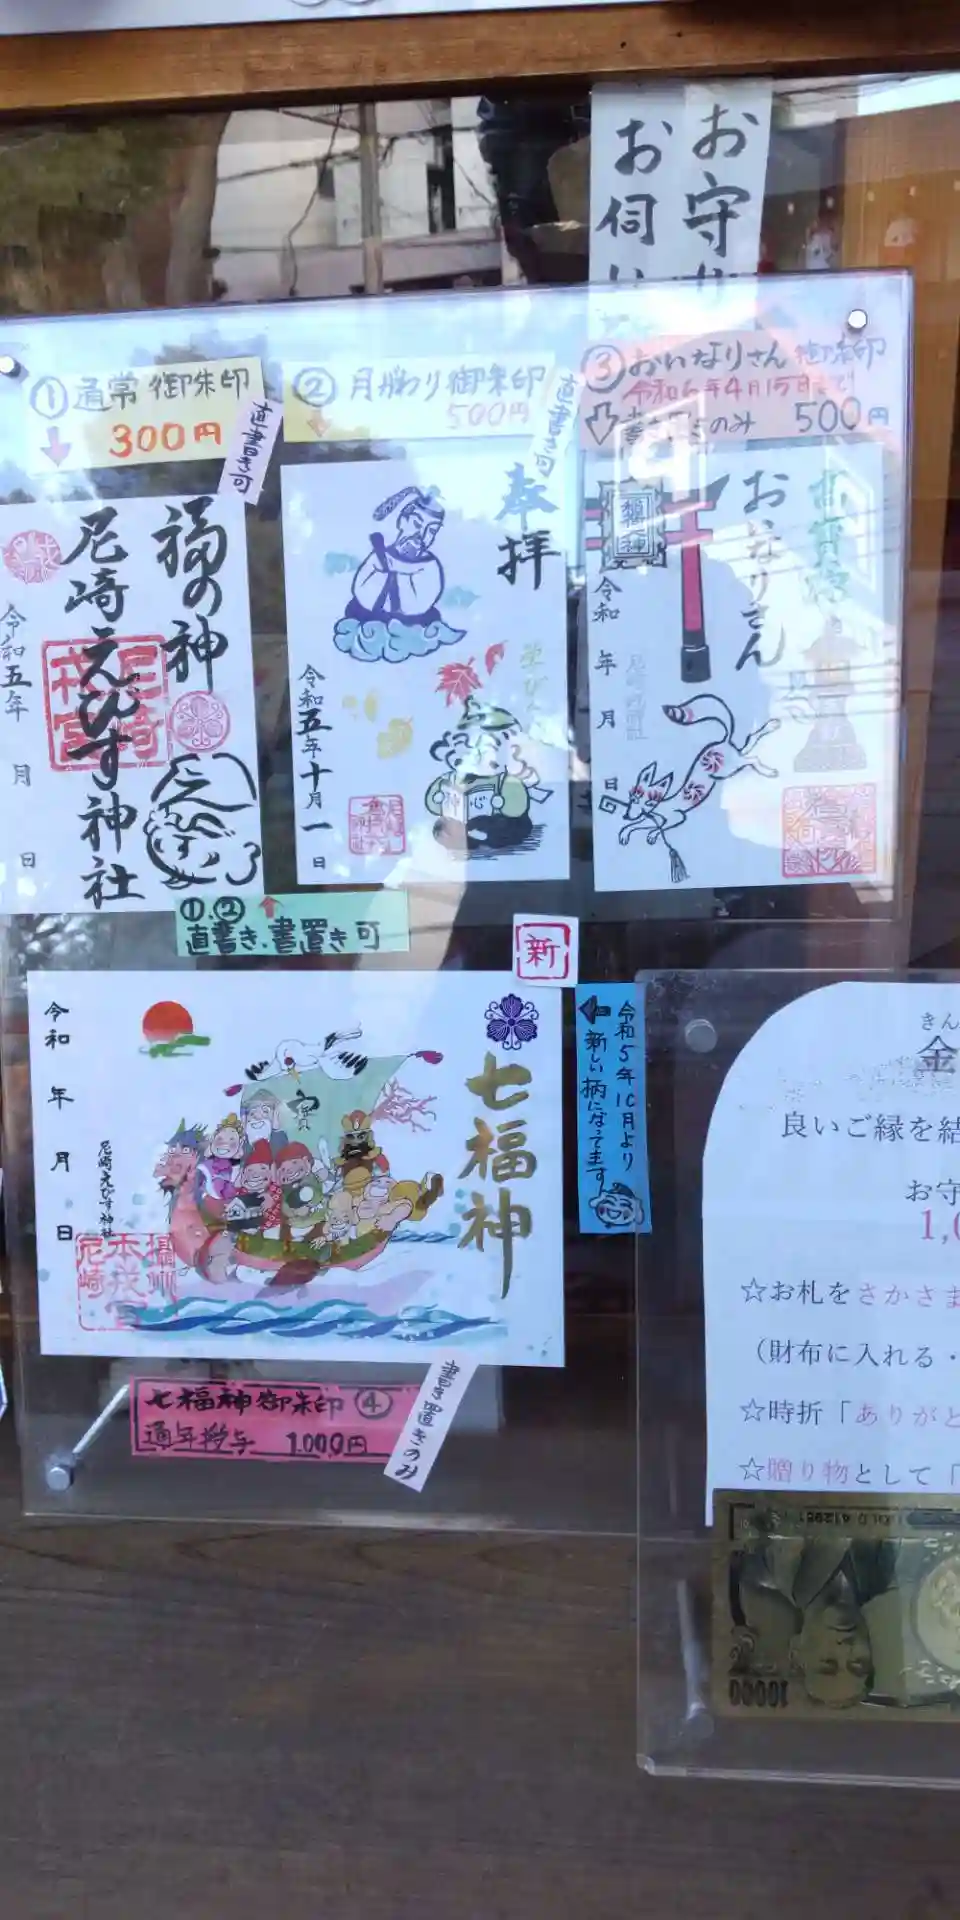 お守り
お伺い
①通常御朱印
300円
直書き可
②月替わり御朱印
500円
直書き可
③おいなりさん御朱印
令和6年4月15日まで
書き置きのみ 500円
福の神
尼崎えびす神社
令和五年 月 日
奉拝
令和五年十月一日
おいなりさん
令和 年 月 日
①.②
直書き.書置き可
新
令和5年10月より
新しい柄になってます
七福神
寶
令和 年 月 日
尼崎えびす神社
七福神御朱印④
通年授与 1,000円
書き置きのみ
きん
金
良いご縁を結
お守
1,0
☆お札をさかさま
(財布に入れる・
☆時折「ありがと
☆贈り物として「
10000